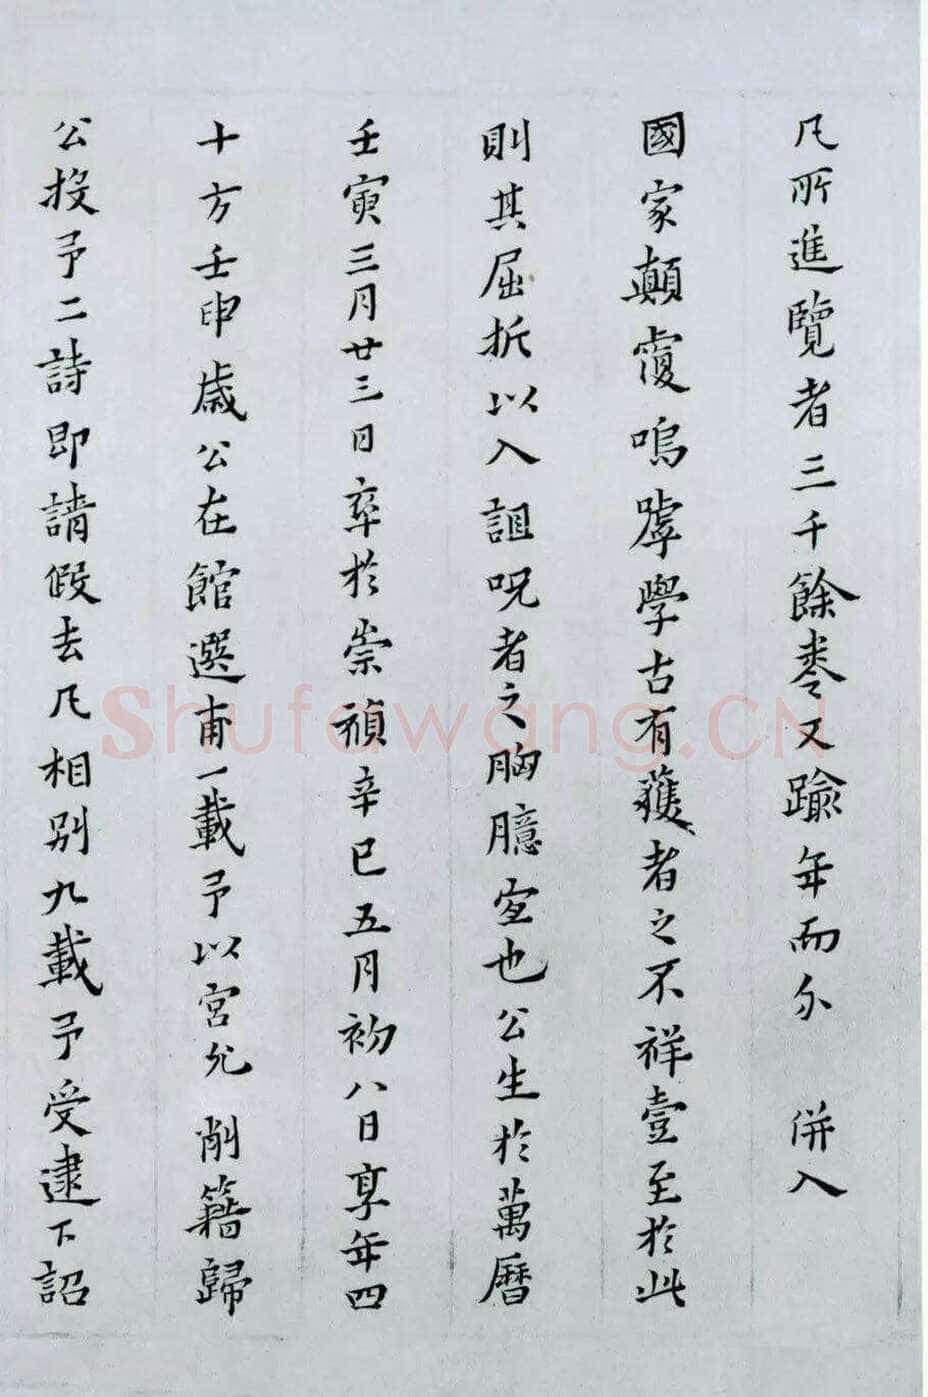 凡所進覽者三千餘卷又踰年而分 併入
國家顛覆嗚嘑學古有獲者之不祥壹至於此
則其屈折以入詛呪者之胸臆宜也公生於萬曆
壬寅三月廿三日卒於崇禎辛巳五月初八日享年四
十方壬申歲公在館選甫一載予以宮允削籍歸
公投予二詩即請假去凡相別九載予受逮下詔
Shufawang.CN